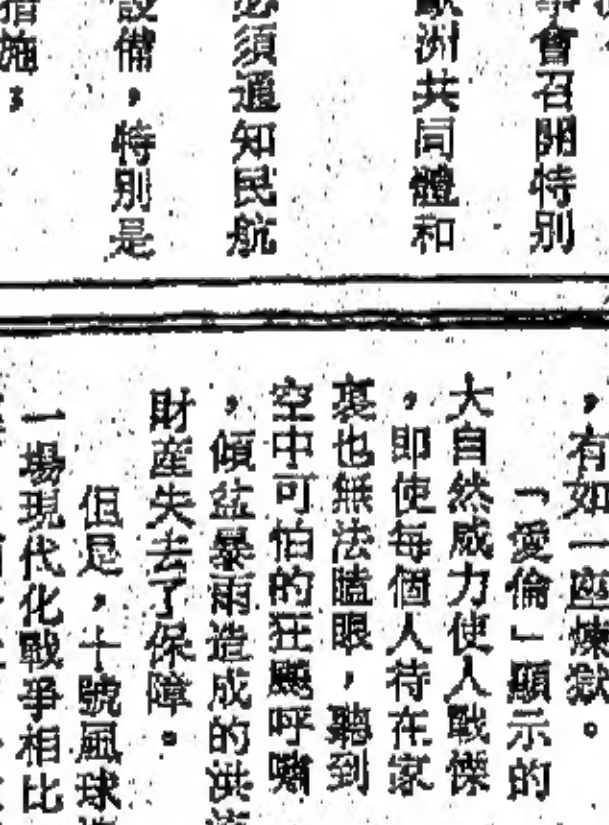 會召開特別
洲共同體和
須通知民航
設備，特別是
措施；
，有如一座煉獄。
「愛倫」顯示的
大自然威力使人戰慄
，即使每個人待在家
裏也無法瞌眼，聽到
空中可怕的狂飈呼嘯
，傾盆暴雨造成的洪
財產失去了保障。
但是，十號風球
一場現代化戰爭相比